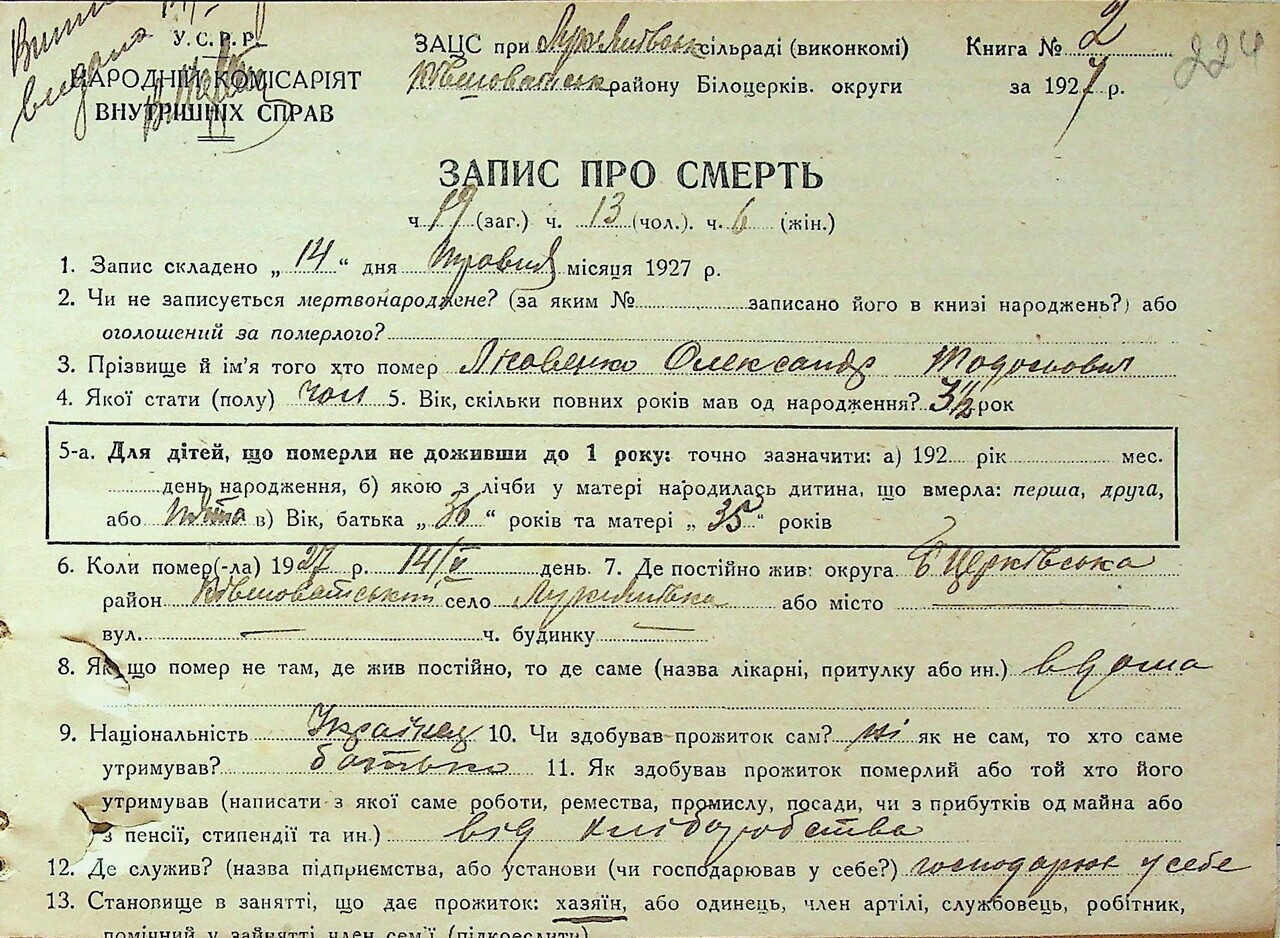 видана
У.С.Р.Р.
НАРОДНІЙ КОМІСАРІЯТ
ВНУТРІШНІХ СПРАВ
ЗАЦС при сільраді (виконкомі)
району Білоцерків. округи
Книга № 2
за 1927 р.
224
ЗАПИС ПРО СМЕРТЬ
ч. 19 (заг.) ч. 13 (чол.). ч. 6 (жін.)
1. Запис складено „ 14 “ дня травня місяця 1927 р.
2. Чи не записується мертвонароджене? (за яким № записано його в книзі народжень?) або
оголошений за померлого?
3. Прізвище й ім'я того хто помер Яковенко Олександр Тодосьович
4. Якої стати (полу) чол 5. Вік, скільки повних років мав од народження? 3 1/2 рок
5-а. Для дітей, що померли не доживши до 1 року: точно зазначити: а) 192 рік мес.
день народження, б) якою з лічби у матері народилась дитина, що вмерла: перша, друга,
або пята в) Вік, батька „ 36 “ років та матері „ 35 “ років
6. Коли помер(-ла) 1927 р. 14/V день. 7. Де постійно жив: округа Б Церківська
район село або місто
вул. ч. будинку
8. Якщо помер не там, де жив постійно, то де саме (назва лікарні, притулку або ин.) вдома
9. Національність Українец 10. Чи здобував прожиток сам? ні як не сам, то хто саме
утримував? батько 11. Як здобував прожиток померлий або той хто його
утримував (написати з якої саме роботи, ремества, промислу, посади, чи з прибутків од майна або
з пенсії, стипендії та ин.) від хліборобства
12. Де служив? (назва підприємства, або установи (чи господарював у себе?) господарює у себе
13. Становище в занятті, що дає прожиток: хазяїн, або одинець, член артілі, службовець, робітник,
помічний у зайнятті член сем'ї (підкреслити)